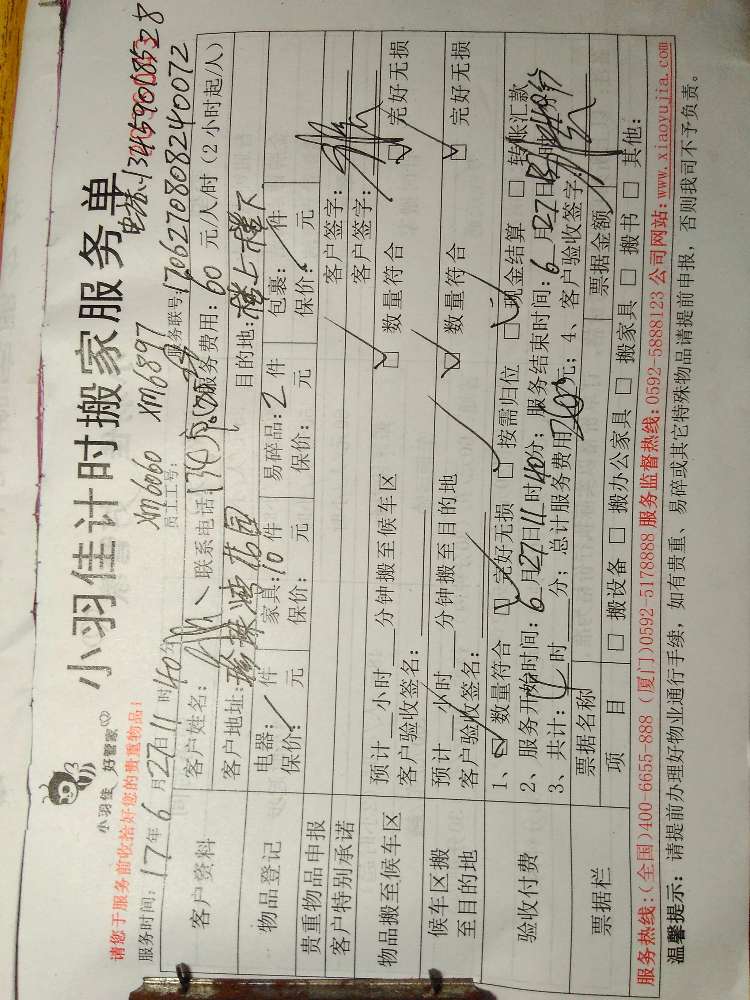 小羽佳 好管家
小羽佳计时搬家服务单
电话:13459008528
请您于服务前收拾好您的贵重物品!
服务时间:17年6月27日11时40分
员工工号:xm6060 xm6897
服务联号:1706270808240072
客户资料
客户姓名:
联系电话:
服务费用:60元/人/时(2小时起/人)
客户地址:珍珠湾花园
目的地:楼上楼下
物品登记
电器:/件 家具:10件 易碎品:2件 包裹:/件
保价: 元 保价: 元 保价: 元 保价: 元
贵重物品申报
客户签字:
客户特别承诺
客户签字:
物品搬至候车区
预计__小时__分钟搬至候车区 □数量符合 □完好无损
客户验收签名:
候车区搬至目的地
预计__小时__分钟搬至目的地 □数量符合 □完好无损
客户验收签名:
验收付费
1、□数量符合 □完好无损 □按需归位 □现金结算 □转账汇款
2、服务开始时间:6月27日11时40分;服务结束时间:6月27日 时 分
3、共计: 时 分;总计服务费用 元;4、客户验收签字:
票据栏
票据名称 票据金额
项目 □搬设备 □搬办公家具 □搬家具 □搬书 □其他:
服务热线:(全国)400-6655-888 (厦门)0592-5178888 服务监督热线:0592-5888123 公司网站:www.xiaoyujia.com
温馨提示:请提前办理好物业通行手续,如有贵重、易碎或其它特殊物品请提前申报,否则我司不予负责。